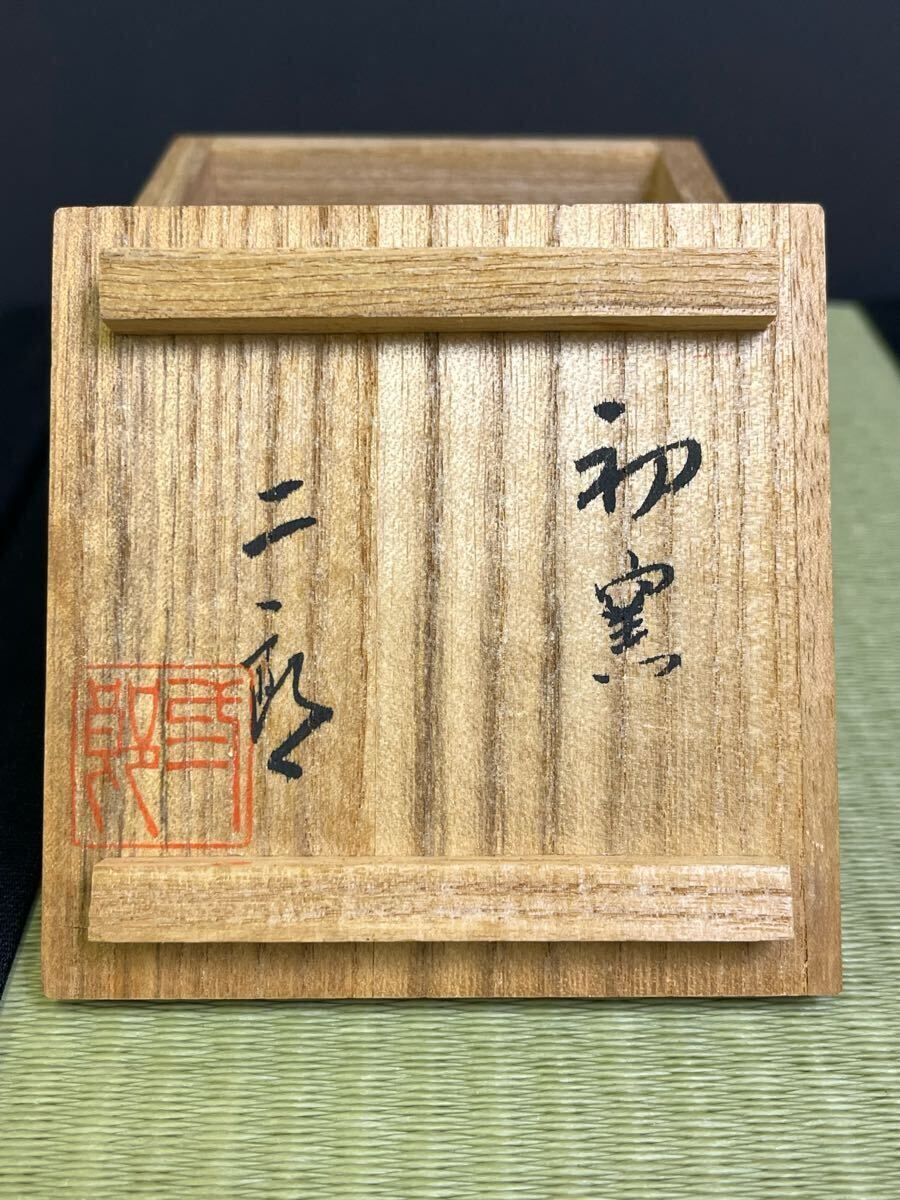 初窯
二郎